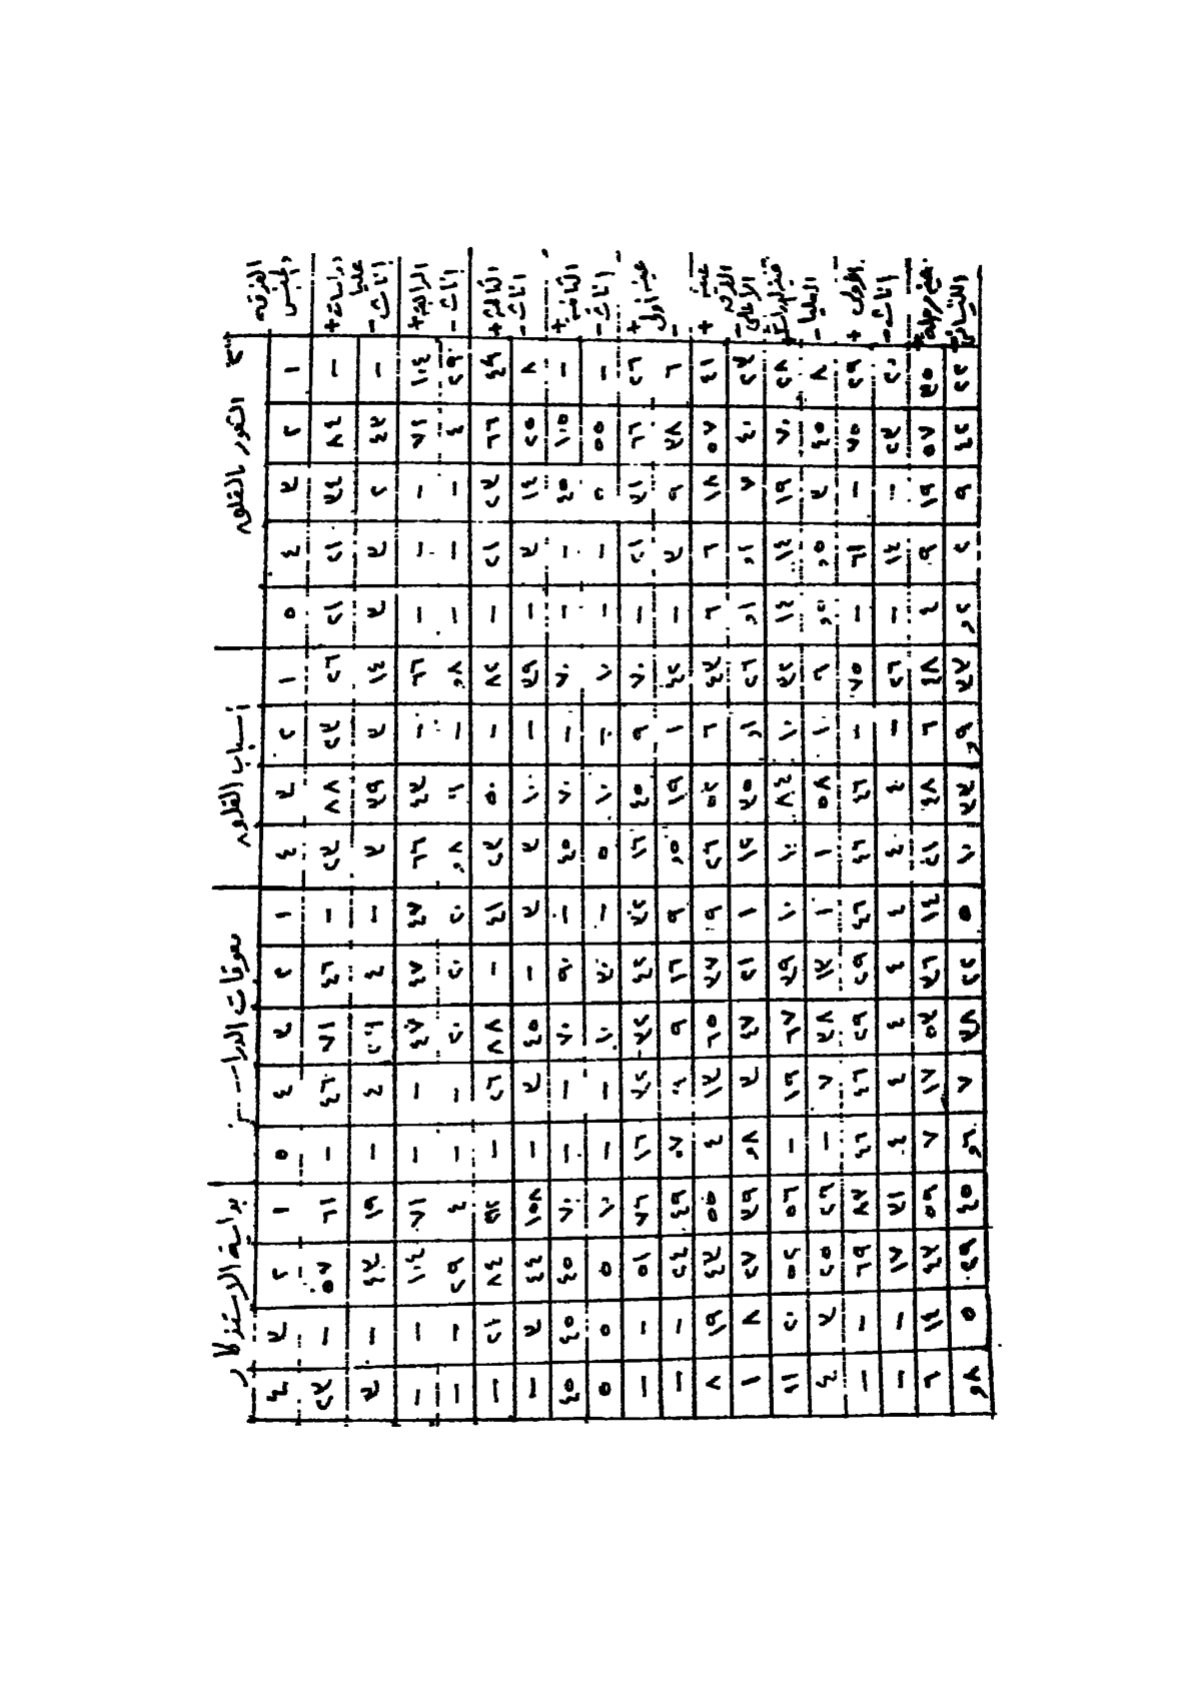 الفرقة الشعور بالقلق أسباب القلق معوقات الدراسة بداية الاستذكار
الجنس ١ ٢ ٣ ٤ ٥ ١ ٢ ٣ ٤ ١ ٢ ٣ ٤ ٥ ١ ٢ ٣ ٤
دراسات + – ٨٤ ٣٤ ٢١ ٢١ ٢٦ ٢٣ ٨٨ ٢٣ – ٤٦ ٧١ ٤٦ – ٦١ ٥٧ – ٢٣
عليا إناث - – ٤٣ ٢ ٣ ٣ ١٤ ٣ ٣٩ ٣ – ٤ ٢٩ ٤ – ١٩ ٤٣ – ٣
الرابعة + ١٠٤ ٧١ – – – ٦٦ – ٤٣ ٦٦ ٤٧ ٤٧ ٤٧ – – ٧١ ١٠٤ – –
إناث - ٢٩ ٤ – – – ٨, – ٨, ٢٠ ٢٠ ٢٠ – – ٤ ٢٩ – –
الثالثة + ٤٩ ٦٦ ٢٣ ٢١ – ٨٢ – ٥٠ ٢٣ ٤١ – ٨٨ ٢٦ – ٩٢ ٨٤ ٢١ –
إناث - ٨ ٢٥ ١٤ ٣ – ٣٩ – ١٠ ٣ ٣ – ٤٥ ٣ – ١٠٨ ٤٤ ٣ –
الثانية + – ١٠٥ ٤٥ – – ٧٠ – ٧٠ ٤٥ – ٩٠ ٧٠ – – ٧٠ ٤٥ ٤٥ ٤٥
إناث - – ٥٥ ٥ – – ١٠ – ١٠ ٥ – ٣٠ ١٠ – – ١٠ ٥ ٥ ٥
عينة أولى + ٢٦ ٦٦ ٣١ ٢١ – ٧٠ ٩ ٤٥ ١٦ ٣٢ ٤٢ ٣٢ ٣٢ ١٦ ٧٦ ٥١ – –
- ٦ ٣٨ ٩ ٣ – ٤٢ ١ ١٩ ٥, ٩ ١٦ ٩ ٩ ٧, ٤٩ ٢٤ – –
عينة + ٤١ ٥٧ ١٨ ٦ ٦ ٤٣ ٦ ٥٢ ٢٦ ٩ ٣٧ ٦٥ ١٣ ٤ ٥٥ ٤٣ ١٩ ٨
الفرقة الأعلى - ٢٣ ٤٠ ٧ ١, ١, ٢٦ ١, ٣٥ ١٢ ١ ٢١ ٤٧ ٣ ٨, ٣٩ ٢٧ ٨ ١
+ ٢٨ ٧٠ ١٩ ١٤ ١٤ ٣٢ ١٠ ٨٤ ١٠ ١٠ ٣٩ ٦٧ ١٩ – ٥٦ ٥٢ ٢٠ ١١
العليا - ٨ ٤٥ ٣ ٥, ٥, ٦ ١ ٥٨ ١ ١ ١٣ ٣٨ ٧ – ٢٦ ٢٥ ٣ ٤,
الأولى + ٢٩ ٧٥ – ٦١ – ٧٥ – ٤٦ ٤٦ ٤٦ ٢٩ ٢٩ ٤٦ ٤٦ ٨٧ ٦٩ – –
إناث - ٢٠ ٢٣ – ١٤ – ٢٦ – ٤ ٤ ٤ ٤ ٤ ٤ ٤ ٣١ ١٧ – –
+ ٣٥ ٥٧ ١٩ ٩ ٤ ٤٨ ٦ ٤٨ ٢١ ١٤ ٣٦ ٥٣ ١٧ ٧ ٥٩ ٤٣ ١٤ ٦
٢٢ ٤٢ ٩ ٢ ٢, ٣٣ ٩, ٣٣ ١٠ ٥ ٢٢ ٣٨ ٧ ٦, ٤٥ ٢٩ ٥ ٨,